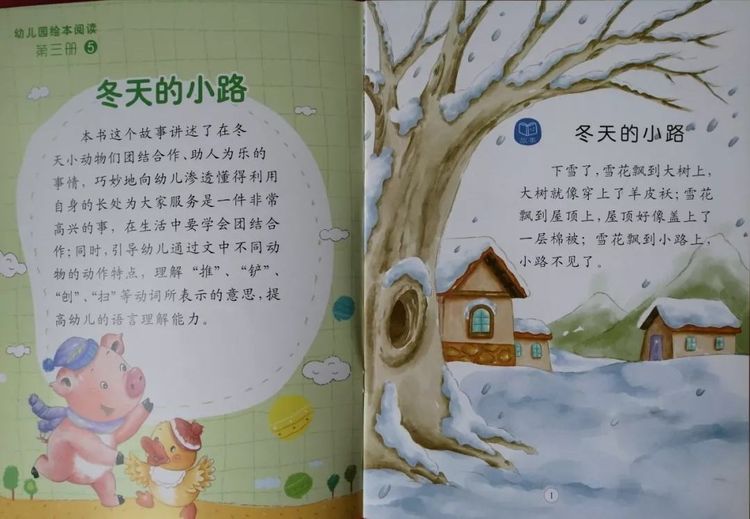 幼儿园绘本阅读
第三册 5
冬天的小路
本书这个故事讲述了在冬
天小动物们团结合作、助人为乐的
事情，巧妙地向幼儿渗透懂得利用
自身的长处为大家服务是一件非常
高兴的事，在生活中要学会团结合
作；同时，引导幼儿通过文中不同动
物的动作特点，理解“推”、“铲”、
“刨”、“扫”等动词所表示的意思，提
高幼儿的语言理解能力。
故事
冬天的小路
下雪了，雪花飘到大树上，
大树就像穿上了羊皮袄；雪花
飘到屋顶上，屋顶好像盖上了
一层棉被；雪花飘到小路上，
小路不见了。
1